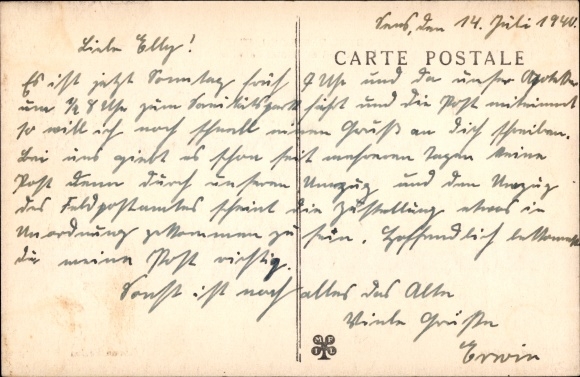 Sens, den 14. Juli 1940.
Liebe Elly!
CARTE POSTALE
Es ist jetzt Sonntag früh 7 Uhr und da unser Apotheker
um ½ 8 Uhr zum Sanitätspark fährt und die Post mitnimmt
so will ich noch schnell einen Gruß an dich schreiben.
Bei uns giebt es schon seit mehreren Tagen keine
Post denn durch unseren Umzug und den Umzug
des Feldpostamtes scheint die Zustellung etwas in
Unordnung gekommen zu sein. Hoffendlich bekommst
du meine Post richtig.
Sonst ist noch alles das Alte
Viele Grüße
Erwin
M F
I L